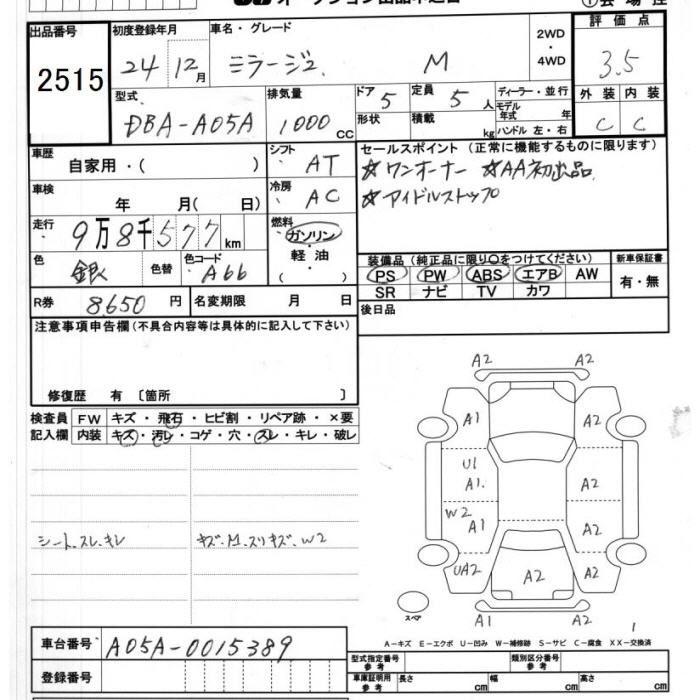 オークション出品申込書
出品番号
2515
初度登録年月
24年12月
車名・グレード
ミラージュ M
2WD
・
4WD
評価点
3.5
型式
DBA-A05A
排気量
1000 CC
ドア 5
形状
定員 5人
積載 kg
ディーラー・並行
モデル年式 年
ハンドル 左・右
外装 内装
C C
車歴
自家用・( )
シフト AT
セールスポイント (正常に機能するものに限ります)
☆ワンオーナー ☆AA初出品
☆アイドルストップ
車検
年 月( 日)
冷房 AC
走行
9万8千577km
燃料
ガソリン
・
軽油
・
( )
色 銀 色替 色コード A66
装備品 (純正品に限り○をつけてください) 新車保証書
PS PW ABS エアB AW 有・無
SR ナビ TV カワ
R券 8,650円 名変期限 月 日
後日品
注意事項申告欄 (不具合内容等は具体的に記入して下さい)
修復歴 有 〔箇所 〕
検査員 FW キズ・飛石・ヒビ割・リペア跡・×要
記入欄 内装 キズ・汚レ・コゲ・穴・スレ・キレ・破レ
シート、スレ、キレ
キズ、M、スリキズ、W2
A2 A2
A1 A2
U1
A1 A2
W2
A1 A2
UA2 A2 A2
スペア
A1 A2
A−キズ E−エクボ U−凹み W−補修跡 S−サビ C−腐食 XX−交換済
車台番号 A05A-0015389
登録番号
型式指定番号 参考
類別区分番号 参考
車庫証明用 参考 長さ cm 幅 cm 高さ cm